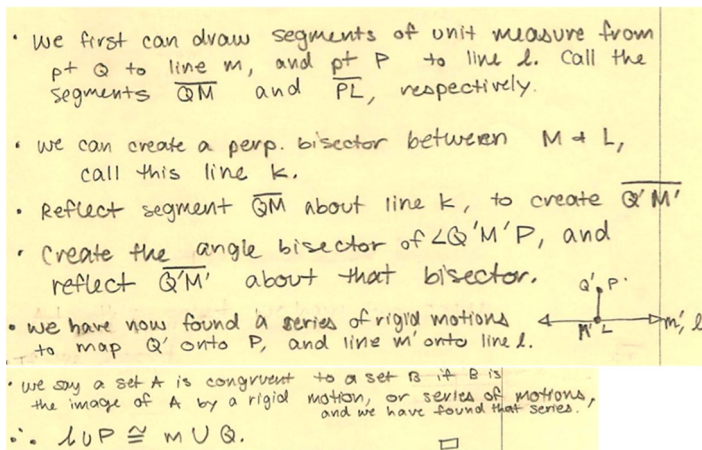 • We first can draw segments of unit measure from
pt Q to line m, and pt P to line l. Call the
segments QM and PL, respectively.
• We can create a perp. bisector between M + L,
call this line k.
• Reflect segment QM about line k, to create Q'M'
• Create the angle bisector of ∠Q'M'P, and
reflect Q'M' about that bisector.
Q' P
• We have now found a series of rigid motions
to map Q' onto P, and line m' onto line l.
M' L m', l
• We say a set A is congruent to a set B if B is
the image of A by a rigid motion, or series of motions,
and we have found that series.
∴ l ∪ P ≅ m ∪ Q.